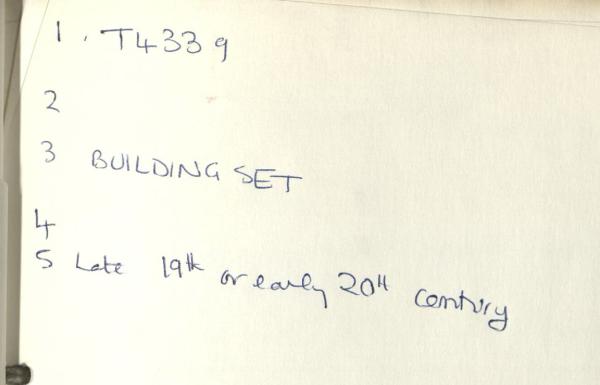 1. T4339
2
3 BUILDING SET
4
5 Late 19th or early 20th century